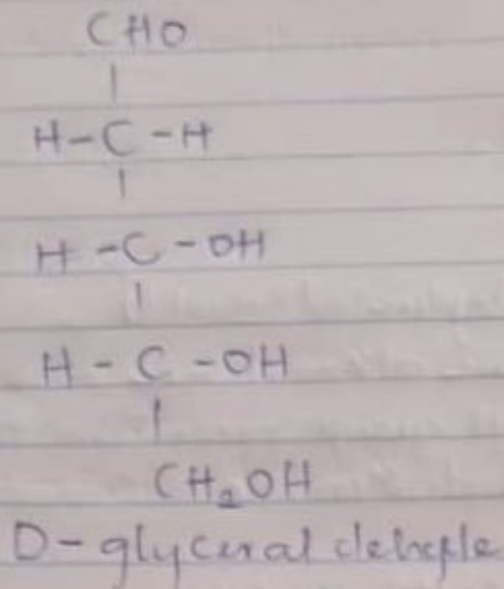 CHO
|
H-C-H
|
H-C-OH
|
H-C-OH
|
CH₂OH
D-glyceral